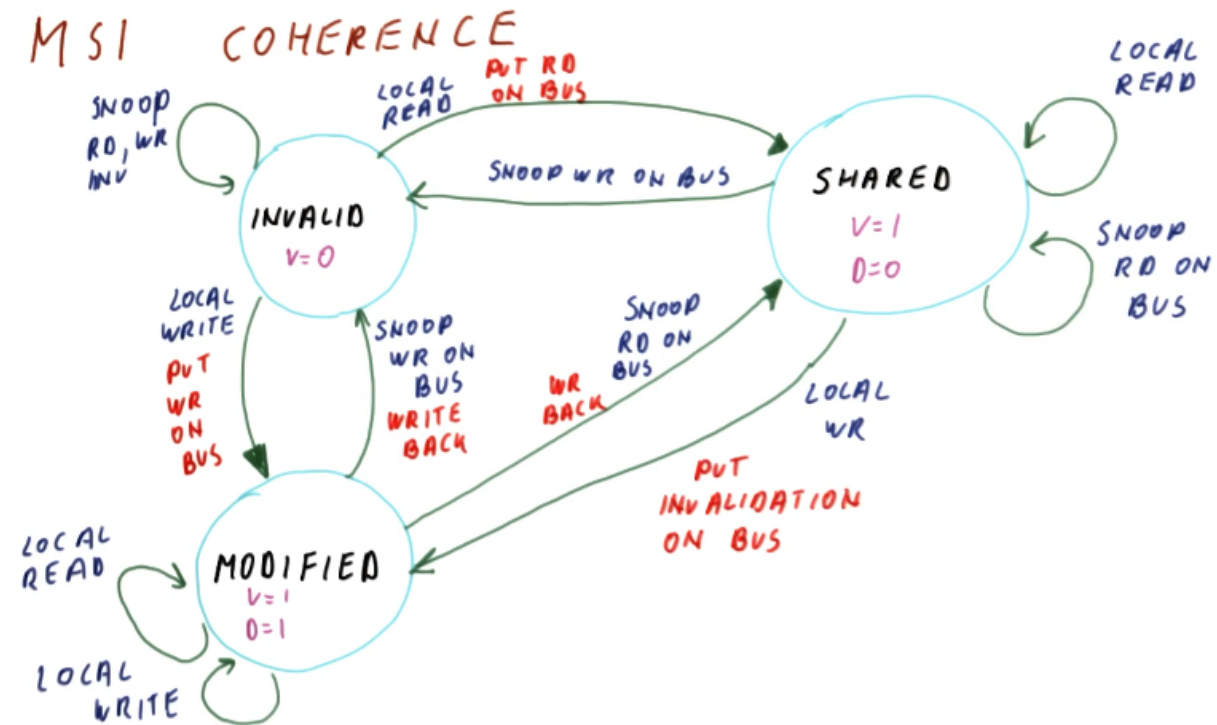 MSI COHERENCE
SNOOP
RD, WR
INV
LOCAL
READ
PUT RD
ON BUS
LOCAL
READ
SNOOP WR ON BUS
INVALID
V=0
SHARED
V=1
D=0
SNOOP
RD ON
BUS
LOCAL
WRITE
PUT
WR
ON
BUS
SNOOP
WR ON
BUS
WRITE
BACK
SNOOP
RD ON
BUS
WR
BACK
LOCAL
WR
PUT
INVALIDATION
ON BUS
LOCAL
READ
MODIFIED
V=1
D=1
LOCAL
WRITE